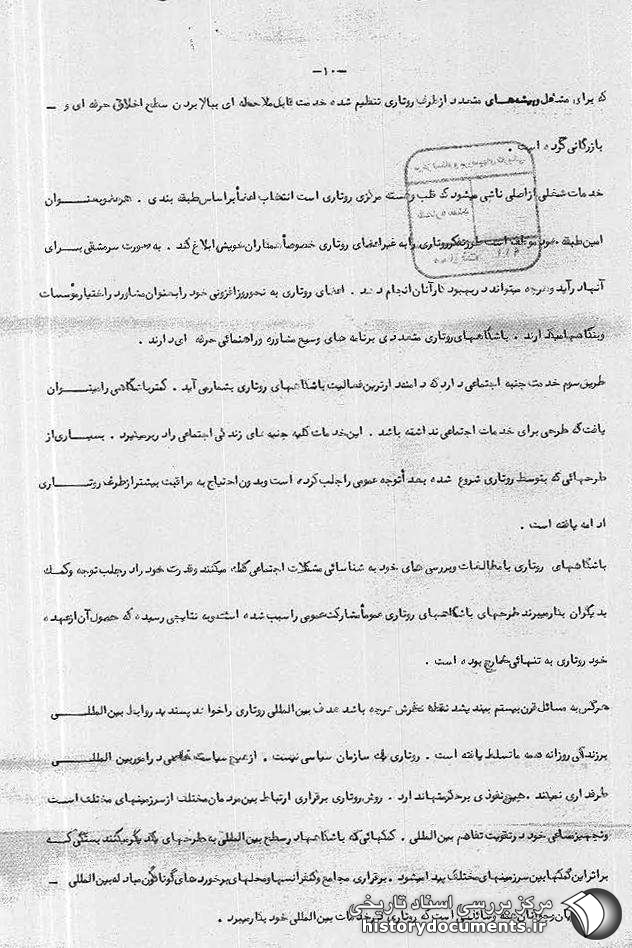 -۱۰-
که برای مشاغل وپیشه‌های متعدد ازطرف روتاری تنظیم شده خدمت قابل ملاحظه ای ببالا بردن سطح اخلاقی حرفه ای و -
بازرگانی کرده است .
خدمات شغلی ازاصلی ناشی میشود که قلب وهسته مرکزی روتاری است انتخاب اعضأ براساس طبقه بندی . هرعضو بعنوان
امین طبقه خود موظف است طرزتفکر روتاری را به غیراعضای روتاری خصوصاً همکاران خویش ابلاغ کند . به صورت سرمشقی برای
آنها درآید وهرچه میتواند در بهبود کار آنان انجام دهد . اعضای روتاری به نحو روزافزونی خود را بعنوان مشاور در اختیار مؤسسات
وبنگاهها میگذارند . باشگاههای روتاری متعددی برنامه های وسیع مشاوره وراهنمائی حرفه ای دارند .
طریق سوم خدمت جنبه اجتماعی دارد که دامنه دارترین فعالیت باشگاههای روتاری بشمار می آید . کمتر باشگاهی را میتوان
یافت که طرحی برای خدمات اجتماعی نداشته باشد . این خدمات کلیه جنبه های زندگی اجتماعی را دربر میگیرد . بسیاری از
طرحهائی که بتوسط روتاری شروع شده بعداً توجه عمومی را جلب کرده است وبدون احتیاج به مراقبت بیشتر ازطرف روتاری
ادامه یافته است .
باشگاههای روتاری با مطالعات وبررسی های خود به شناسائی مشکلات اجتماعی کمک میکنند وقدرت خود را درجلب توجه وکمک
بدیگران بکار میبرند طرحهای باشگاههای روتاری عموماً مشارکت عمومی را سبب شده است وبه نتایجی رسیده که حصول آن ازعهده
خود روتاری به تنهائی خارج بوده است .
هرکس به مسائل قرن بیستم بیندیشد نقطه نظرش هرچه باشد هدف بین المللی روتاری را خواهد پسندید روابط بین المللی
برزندگی روزانه همه ما تسلط یافته است . روتاری یک سازمان سیاسی نیست . ازهیچ سیاست خاصی در امور بین المللی
طرفداری نمیکند . هیچ نفوذی برحکومتها ندارد . روش روتاری برقراری ارتباط بین مردمان مختلف از سرزمینهای مختلف است
وتجهیز مساعی خود در تقویت تفاهم بین المللی . کمکهائی که باشگاهها در سطح بین المللی به طرحهای یکدیگر میکنند بستگی که
براثر این کمکها بین سرزمینهای مختلف پیدا میشود . برقراری مجامع وکنفرانسها ومحلهای برخوردهای گوناگون مبادله بین المللی -
وسائلی است که روتاری درخدمات بین المللی خود بکار میبرد .
مرکز بررسی اسناد تاریخی
historydocuments.ir